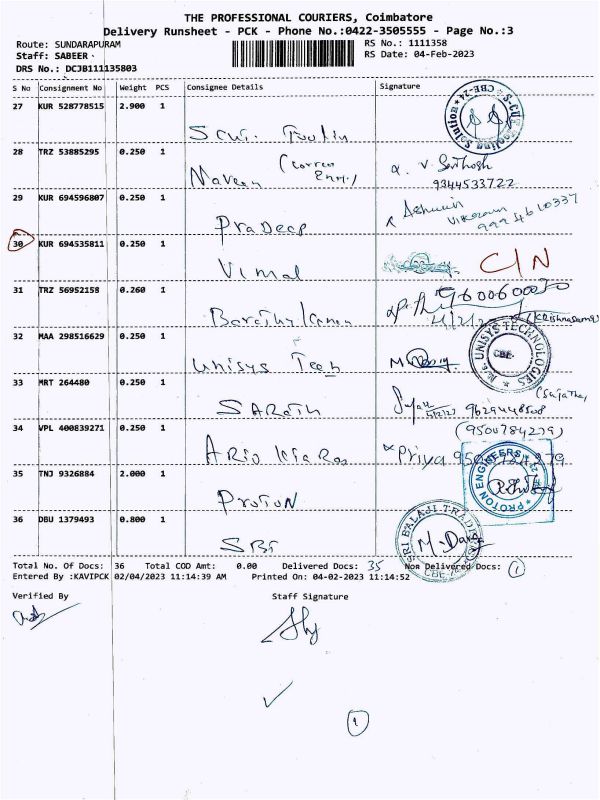 THE PROFESSIONAL COURIERS, Coimbatore
Delivery Runsheet - PCK - Phone No.:0422-3505555 - Page No.:3
Route: SUNDARAPURAM
RS No.: 1111358
Staff: SABEER
RS Date: 04-Feb-2023
DRS No.: DCJB111135803
S No Consignment No Weight PCS Consignee Details Signature
27 KUR 528778515 2.900 1
S-CUT Toolin
S-CUT Tooling Solution CBE-24
28 TRZ 53885295 0.250 1
Naveen (Correct Entry) V. Santhosh
9344533722
29 KUR 694596807 0.250 1
Pradeep
30 KUR 694535811 0.250 1
Vimal C/N
31 TRZ 56952158 0.260 1
9600600050
(Krishnasamy)
32 MAA 298516629 0.250 1
Unisys Tech
M/s. UNISYS TECHNOLOGIES CBE-
33 MRT 264480 0.250 1
Sarath 9629448508 (Sujatha)
34 VPL 400839271 0.250 1
(9500784279)
Priya 9500784279
35 TNJ 9326884 2.000 1
Proton
PROTON ENGINEERS
36 DBU 1379493 0.800 1
SBT
SRI BALAJI TRADERS CBE
Total No. Of Docs: 36 Total COD Amt: 0.00 Delivered Docs: 35 Non Delivered Docs: 1
Entered By :KAVIPCK 02/04/2023 11:14:39 AM Printed On: 04-02-2023 11:14:52
Verified By Staff Signature
1